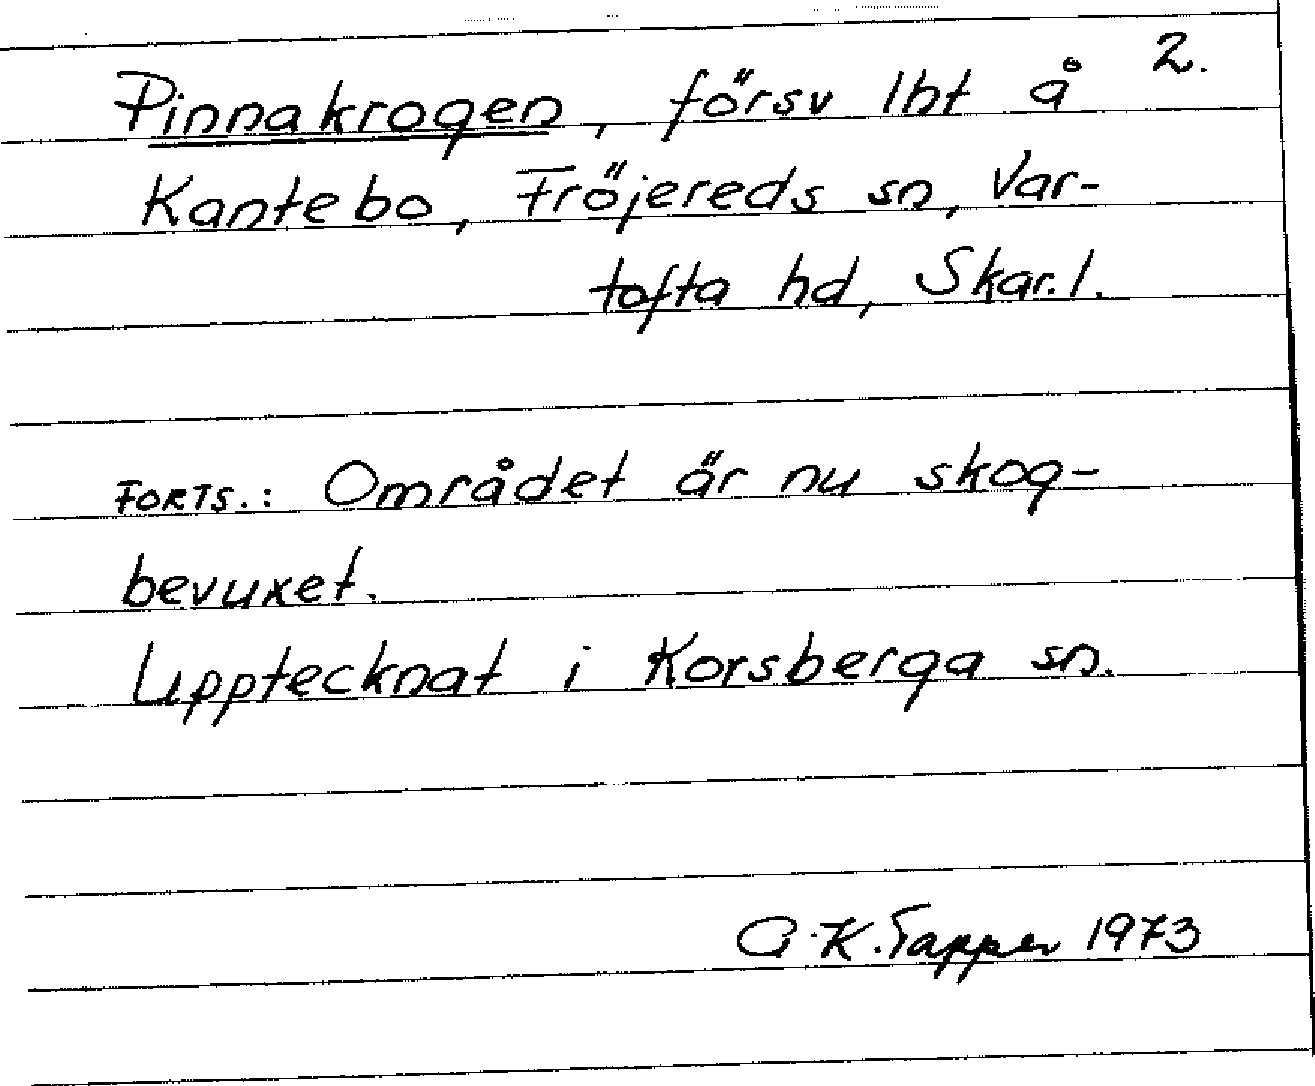 Pinnakrogen, försv lht å 2.
Kantebo, Fröjereds sn, Var-
tofta hd, Skar. l.
FORTS.: Området är nu skog-
bevuxet.
Upptecknat i Korsberga sn.
A.K. Tapper 1973